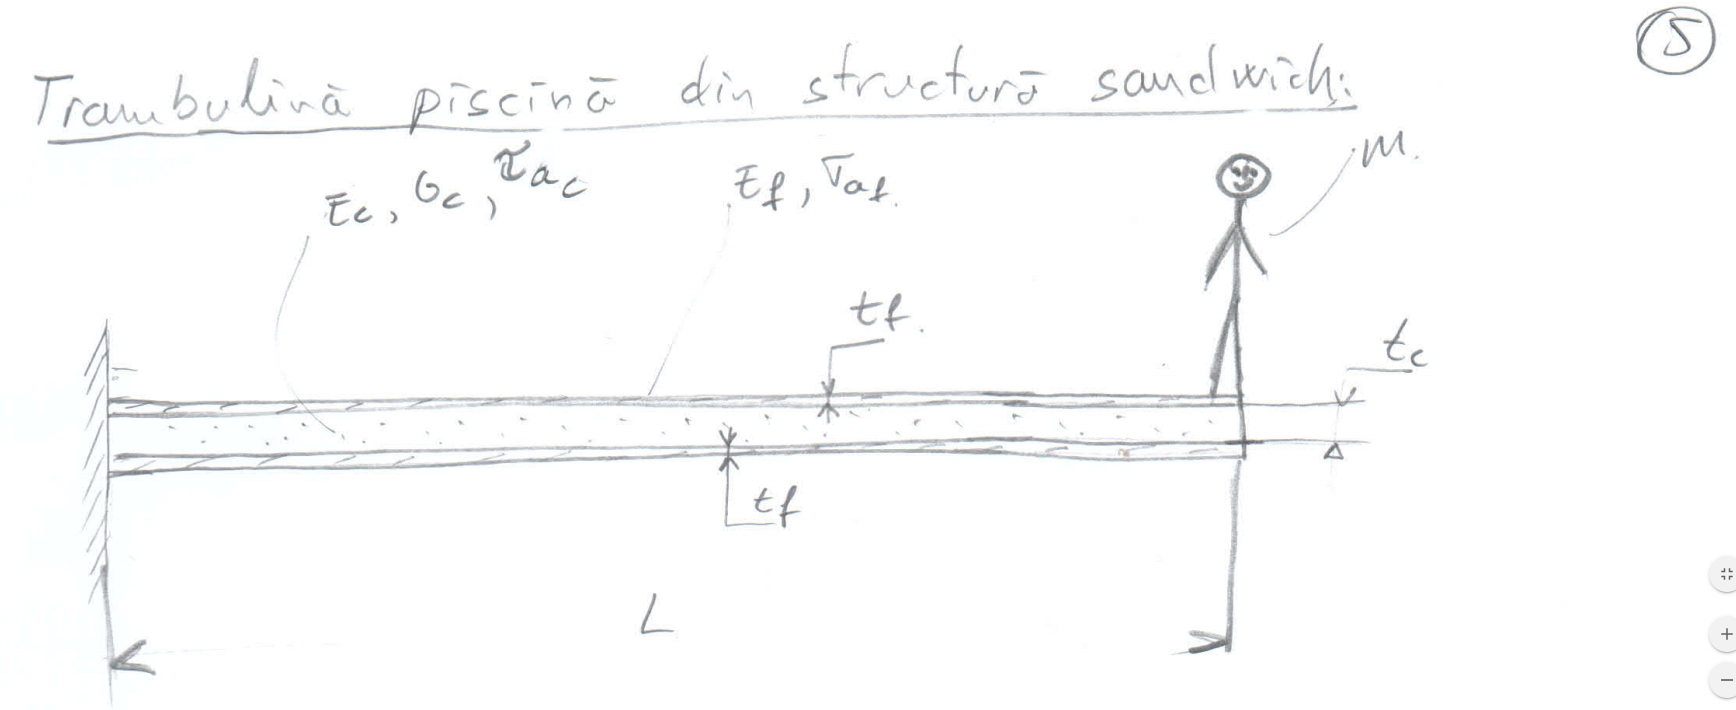 5
Trambulină piscină din structură sandwich:
m.
Ec, Gc, τac
Ef, σaf.
tf.
tc
tf
L